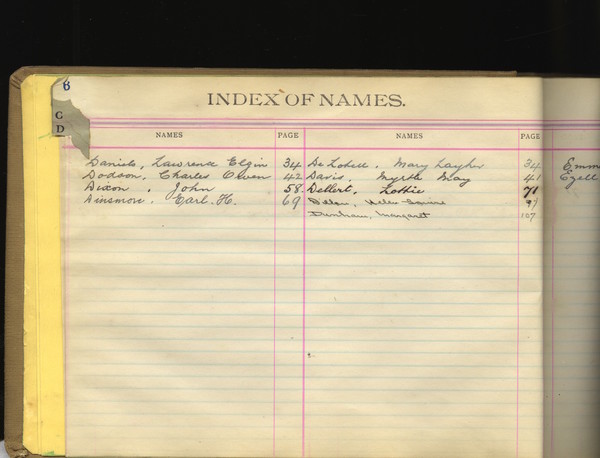 6
C
D
INDEX OF NAMES.
NAMES PAGE NAMES PAGE
Daniels, Lawrence Elgin 34 De Lobell, Mary Layher 34 Emm
Dodson, Charles Owen 42 Davis, Myrtle May 41 Ezell
Dixon, John 58 Dellert, Lottie 71
Dinsmore, Earl H. 69 Helen 97
Margaret 107